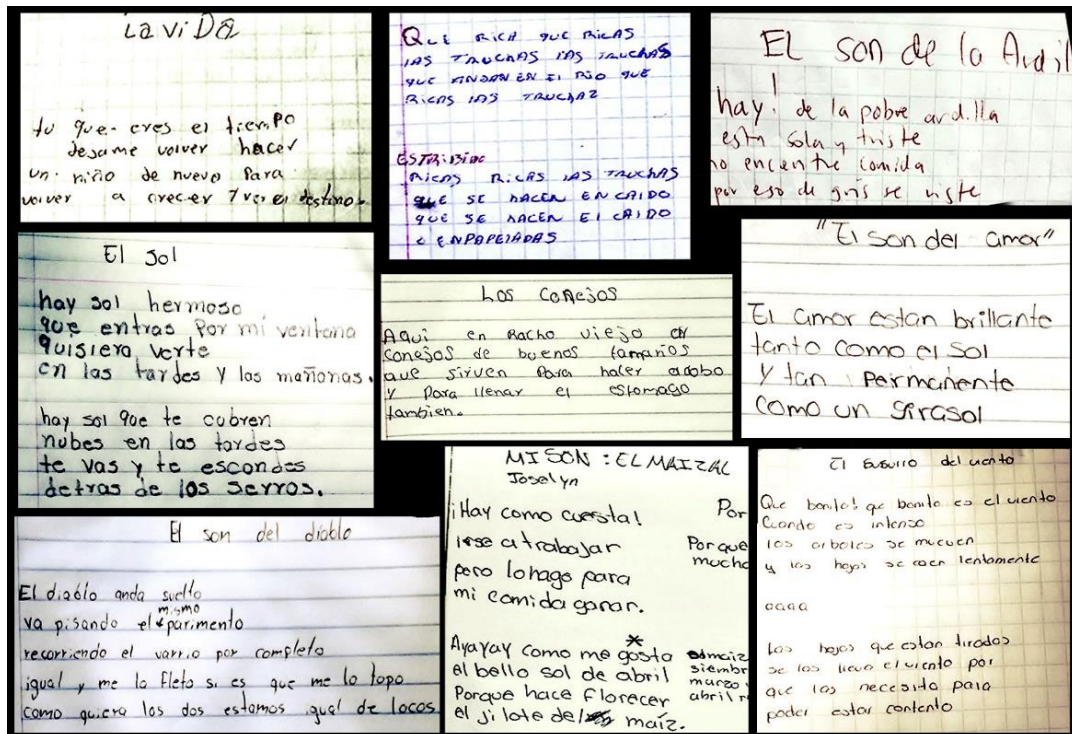 La viDa
tu que- eres el tiempo
desame volver hacer
un niño de nuevo Para
volver a crecer y ver el destino.
QUE RICA QUE RICAS
LAS TRUCHAS LAS TRUCHAS
QUE ANDAN EN EL RIO QUE
RICAS LAS TRUCHAZ
ESTRIBIDO
RICAS RICAS LAS TRUCHAS
QUE SE HACEN EN CAIDO
QUE SE HACEN EL CAIDO
O ENPAPELADAS
EL son de la Ardil
hay! de la pobre ardilla
esta sola y triste
no encentre comida
por eso de gris se viste
El sol
hay sol hermoso
que entras Por mi ventana
quisiera verte
en las tardes y las mañanas.
hay sol que te cubren
nubes en las tardes
te vas y te escondes
detras de los serros.
Los Conejos
Aqui en Racho viejo
conejos de buenos tamaños
que sirven Para hacer adobo
y Para llenar el estomago
tambien.
"El son del amor"
El amor estan brillante
tanto como el sol
y tan Permanente
como un girasol
El son del diablo
El diablo anda suelto
va pisando el mismo parimento
recorriendo el varrio por completo
igual y me lo fleto si es que me lo topo
como quiera los dos estamos igual de locos
MI SON : EL MAIZAL
Joselyn
¡Hay como cuesta!
irse a trabajar
pero lo hago para
mi comida ganar.
Ayayay como me gosta
el bello sol de abril
Porque hace florecer
el jilote del maíz.
Por
Porque
mucho
maiz
siembr
marzo
abril
El susurro del viento
Que bonito! qe bonito es el viento
Cuando es intenso
los arboles se mueven
y las hojas se caen lentamente
aaaa
Las hojas que estan tiradas
se las lleva el viento por
que las necesita para
poder estar contento